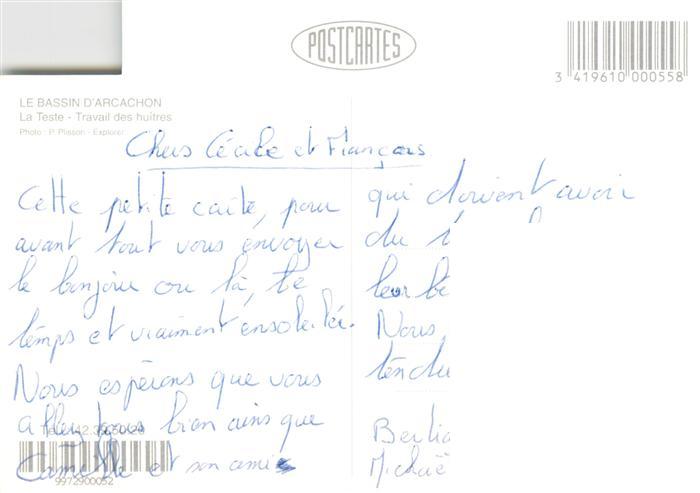 POSTCARTES
3 419610 000558
LE BASSIN D'ARCACHON
La Teste - Travail des huîtres
Photo : P. Plisson - Explorer
Chers Cécile et François
Cette petite carte, pour
avant tout vous envoyer
le bonjour ou là, le
temps et vraiment ensoleillé.
Nous espérons que vous
allez tous bien ainsi que
Camille et son ami
9972900052
qui doivent avoir
du
leur bé
Nous
tendu
Michaë